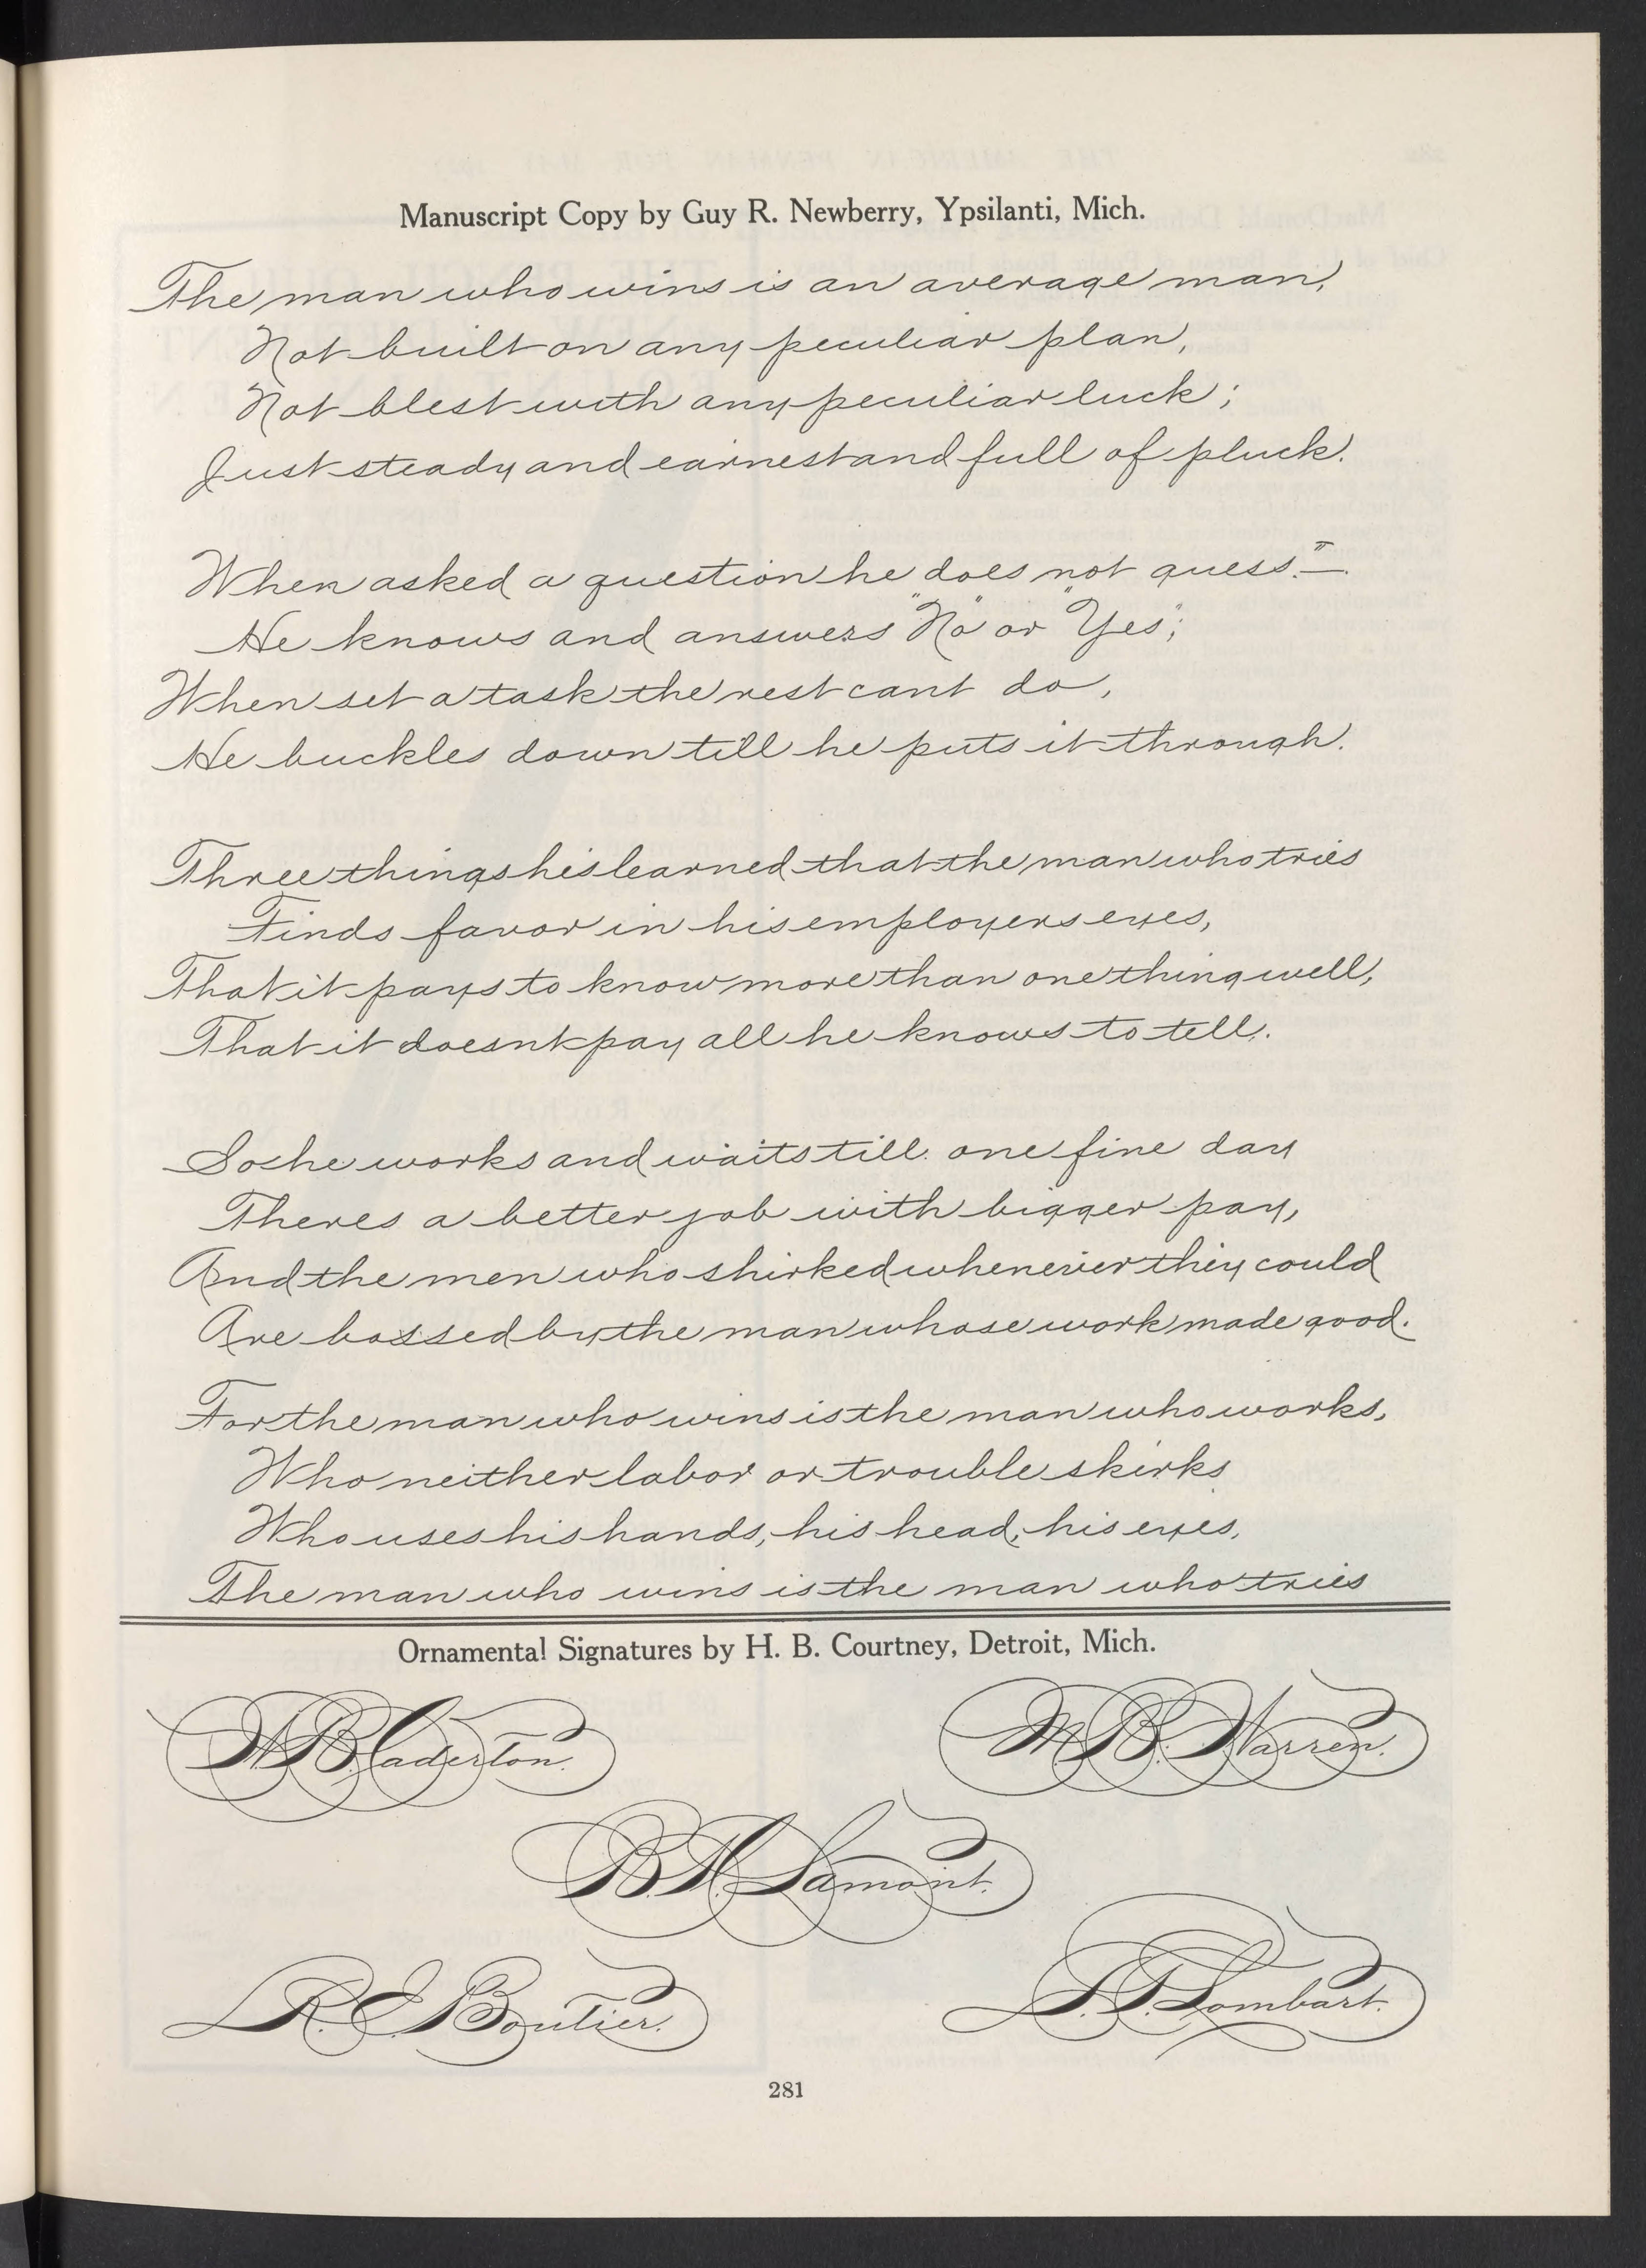 Manuscript Copy by Guy R. Newberry, Ypsilanti, Mich.
The man who wins is an average man,
Not built on any peculiar plan,
Not blest with any peculiar luck;
Just steady and earnest and full of pluck.
When asked a question he does not "guess."—
He knows and answers "No" or "Yes";
When set a task the rest cant do,
He buckles down till he puts it through.
Three things he's learned that the man who tries
Finds favor in his employers eyes,
That it pays to know more than one thing well,
That it doesnt pay all he knows to tell.
So he works and waits till one fine day
Theres a better job with bigger pay,
And the men who shirked whenever they could
Are bossed by the man whose work made good.
For the man who wins is the man who works,
Who neither labor or trouble skirks
Who uses his hands, his head, his eyes,
The man who wins is the man who tries
Ornamental Signatures by H. B. Courtney, Detroit, Mich.
M. B. Warren.
B. H. Lamont.
R. E. Boutier.
Lombart.
281